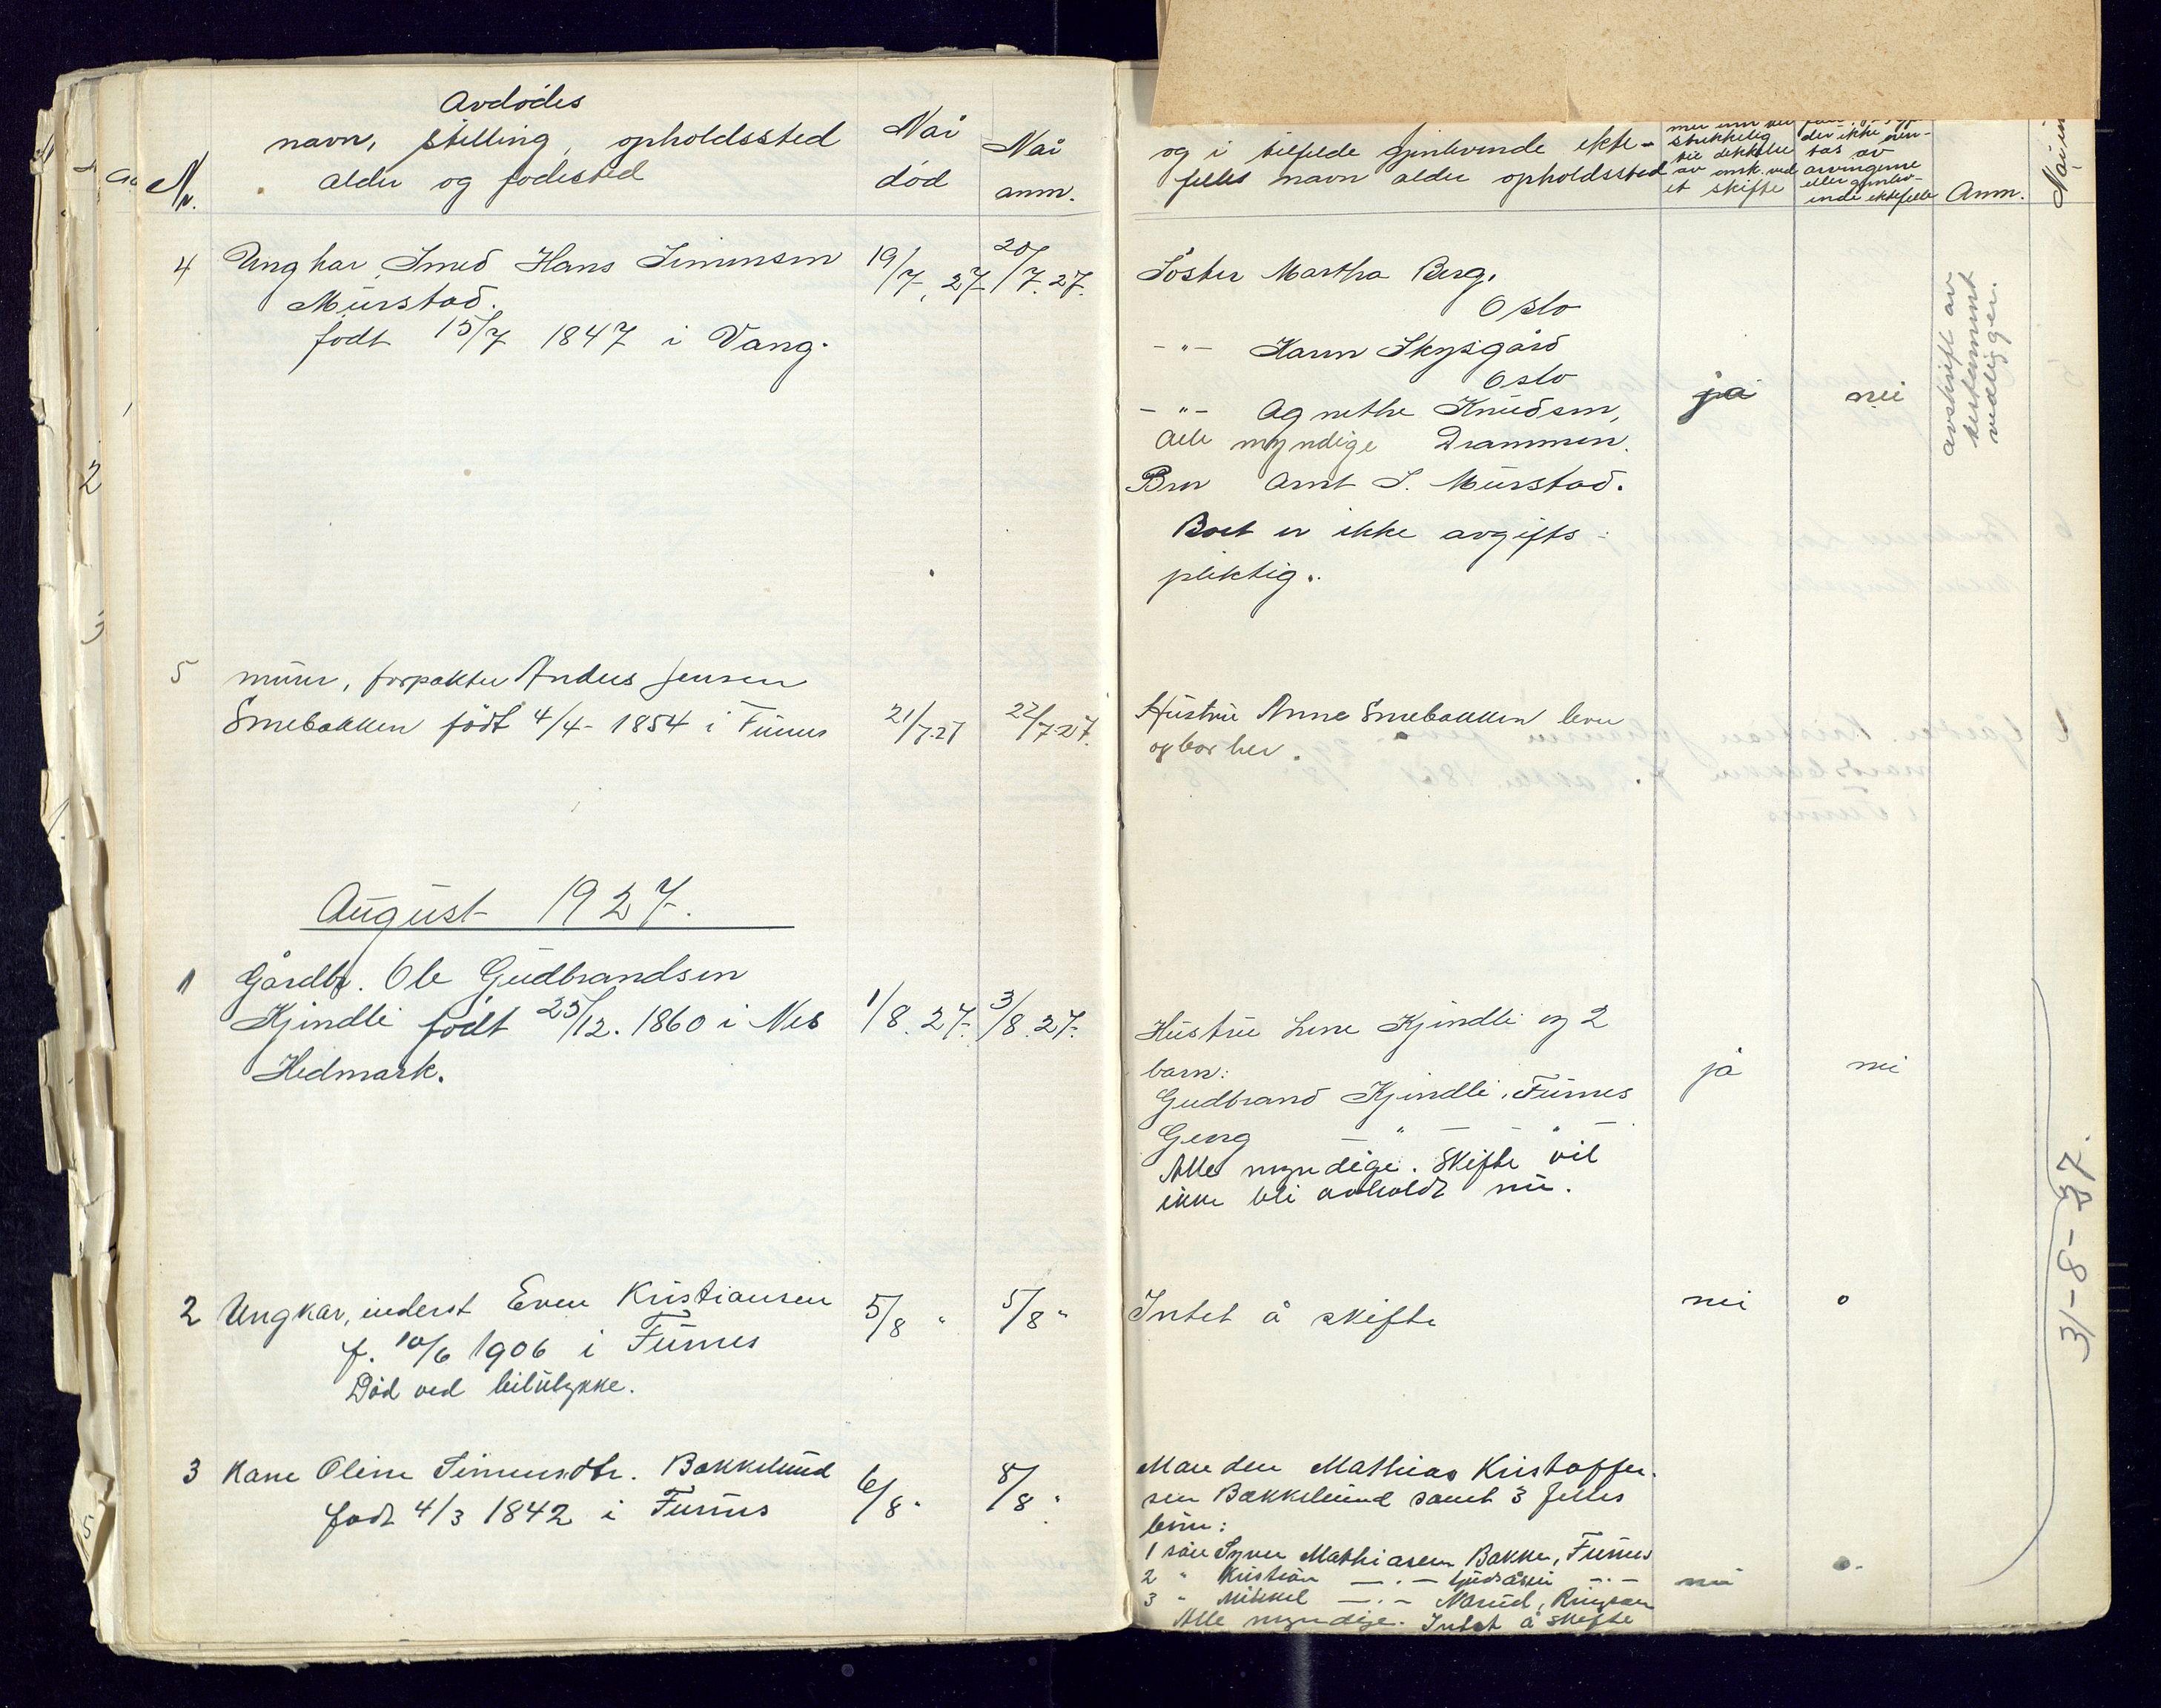 Avdødes
navn, stilling, opholdssted
alder og fødested
Nr.
Når
død
Når
anm.
4 Ungkar Smed Hans Simensen
Murstad.
født 15/7 1847 i Vang.
19/7. 27
20/7. 27.
5 murer, forpakter Anders Jensen
Smebakken født 4/4- 1854 i Furnes
21/7.27
22/7.27.
August 1927.
1 Gårdbr. Ole Gudbrandsen
Kjindli født 25/12. 1860 i Nes
Hedmark.
1/8. 27.
3/8. 27.
2 Ungkar, inderst Even Kristiansen
f. 10/6 1906 i Furnes
Død ved bilulykke.
5/8 "
5/8 "
3 Kone Oline Simensdtr. Bakkelund
født 4/3 1842 i Furnes
6/8 "
8/8 "
og i tilfelde gjenlevende ekte-
felles navn alder opholdssted
strekkelig
til dekkelse
av omk. ved
et skifte
der ikke
tas av
arvingerne
eller gjenlev-
ende ektefelle
Anm.
Søster Martha Berg.
Oslo
-"- Karen Skysgård
Oslo
-"- Agnethe Knudsen,
Alle myndige Drammen.
Bror Arnt S. Murstad.
Boet er ikke avgifts-
pliktig.
ja
nei
avskrift av
testament
vedligger.
Hustru Anne Smebakken lever
og bor her.
Hustru Lene Kjindli og 2
barn:
Gudbrand Kjindli, Furnes
Georg - " - - " -
Alle myndige. Skifte vil
ikke bli avholdt nu.
ja
nei
Intet å skifte
nei
o
Manden Mathias Kristoffer-
sen Bakkelund samt 3 felles
børn:
1 søn Syver Mathiasen Bakken, Furnes
2 " Kristian -"- -"-
3 " Mikkel -"- Narud, Ringsaker
Alle myndige. Intet å skifte
nei
o.
31-8-27.